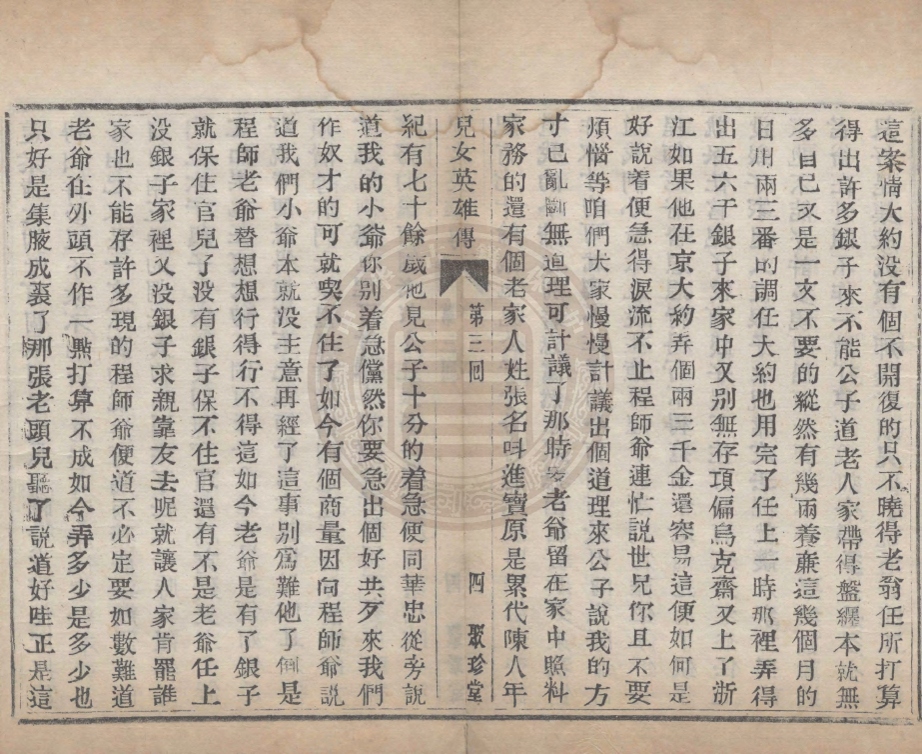 這案情大約没有個不開復的只不曉得老翁任所打算
得出許多銀子來不能公子道老人家帶得盤纏本就無
多自己又是一文不要的縱然有幾兩養廉這幾個月的
日用兩三番的調任大約也用完了任上一時那裡弄得
出五六千銀子來家中又别無存項偏烏克齋又上了浙
江如果他在京大約弄個兩三千金還容易這便如何是
好說着便急得淚流不止程師爺連忙説世兄你且不要
煩惱等咱們大家慢慢計議出個道理來公子說我的方
寸已亂斷無道理可計議了那時安老爺留在家中照料
家務的還有個老家人姓張名叫進寶原是累代陳人年
兒女英雄傳
第三回
四
聚珍堂
紀有七十餘歲他見公子十分的着急便同華忠從旁說
道我的小爺你别着急儻然你要急出個好共歹來我們
作奴才的可就喫不住了如今有個商量因向程師爺説
道我們小爺本就没主意再經了這事别爲難他了倒是
程師老爺替想想行得行不得這如今老爺是有了銀子
就保住官兒了没有銀子保不住官還有不是老爺任上
没銀子家裡又没銀子求親靠友去呢就讓人家肯罷誰
家也不能存許多現的程師爺便道不必定要如數難道
老爺在外頭不作一點打算不成如今弄多少是多少也
只好是集腋成裘了那張老頭兒聽了説道好哇正是這